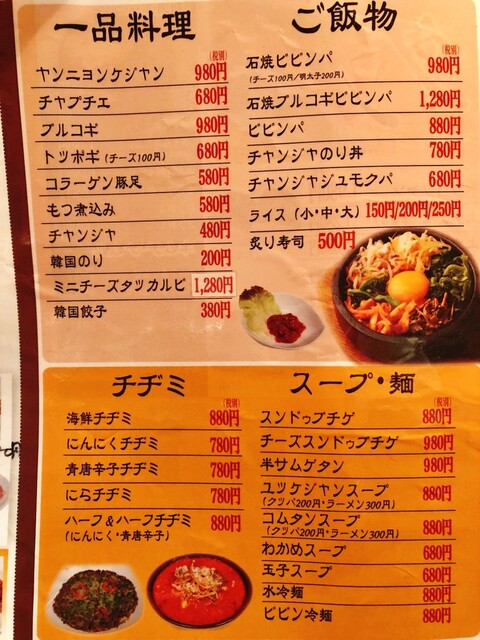 一品料理
(税別)
ヤンニョンケジャン 980円
チャプチエ 680円
プルコギ 980円
トッポギ(チーズ100円) 680円
コラーゲン豚足 580円
もつ煮込み 580円
チャンジャ 480円
韓国のり 200円
ミニチーズタッカルビ 1,280円
韓国餃子 380円
ご飯物
(税別)
石焼ビビンバ 980円
(チーズ100円/明太子200円)
石焼プルコギビビンバ 1,280円
ビビンバ 880円
チャンジャのり丼 780円
チャンジャジュモクパ 680円
ライス(小・中・大) 150円/200円/250円
炙り寿司 500円
チヂミ
(税別)
海鮮チヂミ 880円
にんにくチヂミ 780円
青唐辛子チヂミ 780円
にらチヂミ 780円
ハーフ&ハーフチヂミ 880円
(にんにく・青唐辛子)
スープ・麺
(税別)
スンドゥブチゲ 880円
チーズスンドゥブチゲ 980円
半サムゲタン 980円
ユッケジャンスープ 880円
(クッパ200円・ラーメン300円)
コムタンスープ 880円
(クッパ200円・ラーメン300円)
わかめスープ 680円
玉子スープ 680円
水冷麺 880円
ビビン冷麺 880円